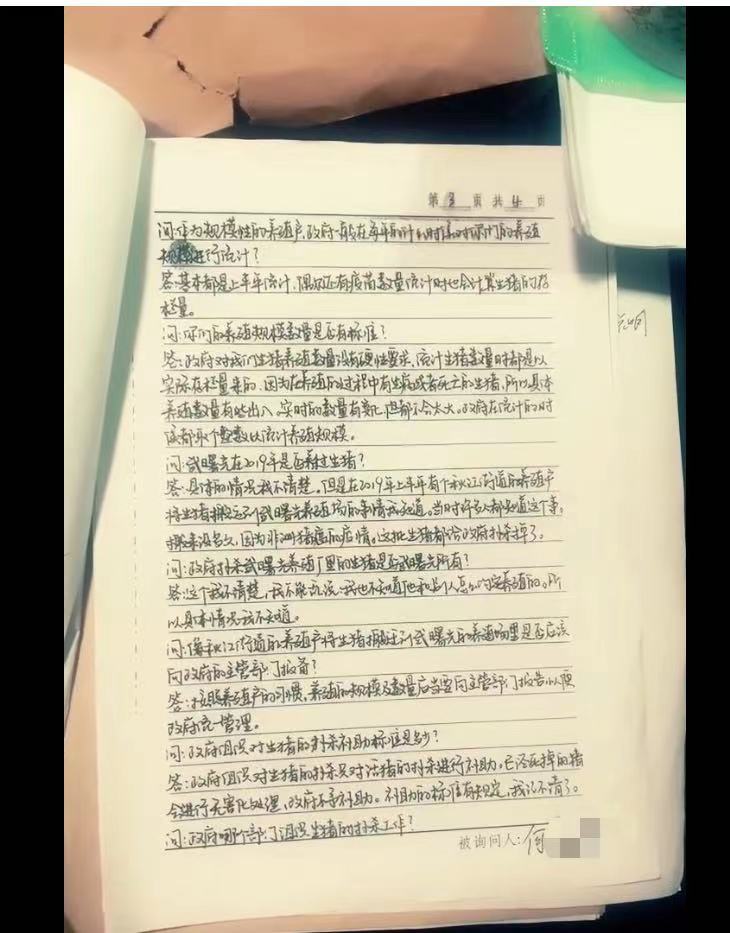 第 3 页 共 4 页
问:作为规模性的养殖户,政府一般在每年的什么时候对你们的养殖
规模进行统计?
答:基本都是上半年统计,偶尔还有疫苗数量统计时也会计算生猪的存
栏量。
问:你们的养殖规模数量是否有标准?
答:政府对我们生猪养殖数量没有硬性要求,统计生猪数量时都是以
实际存栏量来的,因为在养殖的过程中有生病或者死亡的生猪,所以具体
养殖数量有些出入。实时的数量有变化,但都不会太大。政府在统计的时
候都取个整数以统计养殖规模。
问:武曙光在2019年是否养过生猪?
答:具体的情况我不清楚。但是在2019年上半年有个秋江街道的养殖户
将生猪搬运到武曙光养殖场的事情我知道。当时许多人都知道这个事,
搬来没多久,因为非洲猪瘟的疫情。这批生猪都给政府扑杀掉了。
问:政府扑杀武曙光养殖厂里的生猪是否武曙光所有?
答:这个我不清楚,我不能乱说。我也不知道他和别人怎么约定养殖的。所
以具体情况我不知道。
问:像秋江街道的养殖户将生猪搬迁到武曙光的养殖场里是否应该
向政府的主管部门报备?
答:按照养殖户的习惯,养殖的规模及数量应当要向主管部门报告以便
政府统一管理。
问:政府组织对生猪的扑杀补助标准是多少?
答:政府组织对生猪的扑杀只对活猪的扑杀进行补助。已经死掉的猪
会进行无害化处理,政府不予补助。补助的标准有规定,我记不清了。
问:政府哪个部门组织生猪的扑杀工作?
被询问人:何